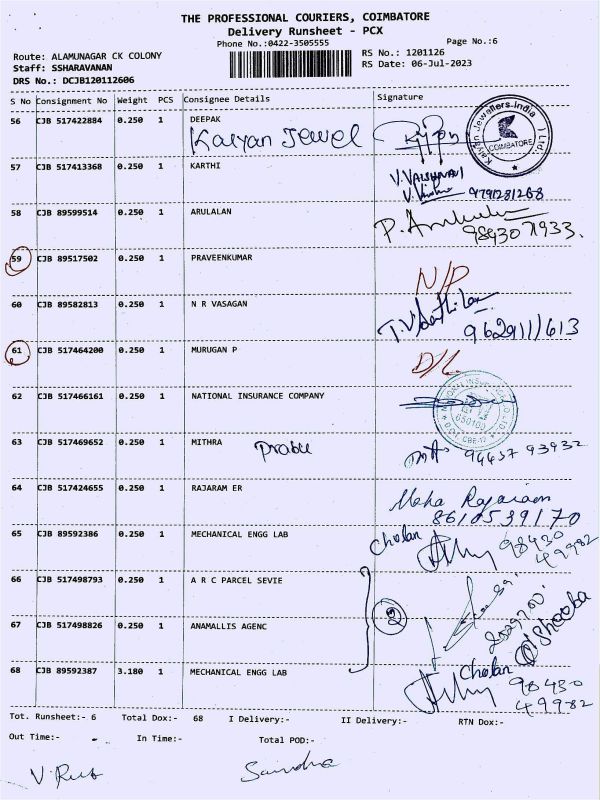 THE PROFESSIONAL COURIERS, COIMBATORE
Delivery Runsheet - PCX
Phone No.:0422-3505555 Page No.:6
Route: ALAMUNAGAR CK COLONY RS No.: 1201126
Staff: SSHARAVANAN RS Date: 06-Jul-2023
DRS No.: DCJB120112606
S No Consignment No Weight PCS Consignee Details Signature
56 CJB 517422884 0.250 1 DEEPAK
Kalyan Jewel
Kalyan Jewellers India Ltd. COIMBATORE
57 CJB 517413368 0.250 1 KARTHI
V. VAISHNAVI
9791281268
58 CJB 89599514 0.250 1 ARULALAN
9843071933.
59 CJB 89517502 0.250 1 PRAVEENKUMAR
N/P
60 CJB 89582813 0.250 1 N R VASAGAN
9629111613
61 CJB 517464200 0.250 1 MURUGAN P
D/L
62 CJB 517466161 0.250 1 NATIONAL INSURANCE COMPANY
63 CJB 517469652 0.250 1 MITHRA Prabu
94437 93932
64 CJB 517424655 0.250 1 RAJARAM ER
Maha Rajaram
8610539170
65 CJB 89592386 0.250 1 MECHANICAL ENGG LAB
Cholan 98430
49982
66 CJB 517498793 0.250 1 A R C PARCEL SEVIE
2
67 CJB 517498826 0.250 1 ANAMALLIS AGENC
68 CJB 89592387 3.180 1 MECHANICAL ENGG LAB
Cholan 98430
49982
Tot. Runsheet:- 6 Total Dox:- 68 I Delivery:- II Delivery:- RTN Dox:-
Out Time:- In Time:- Total POD:-